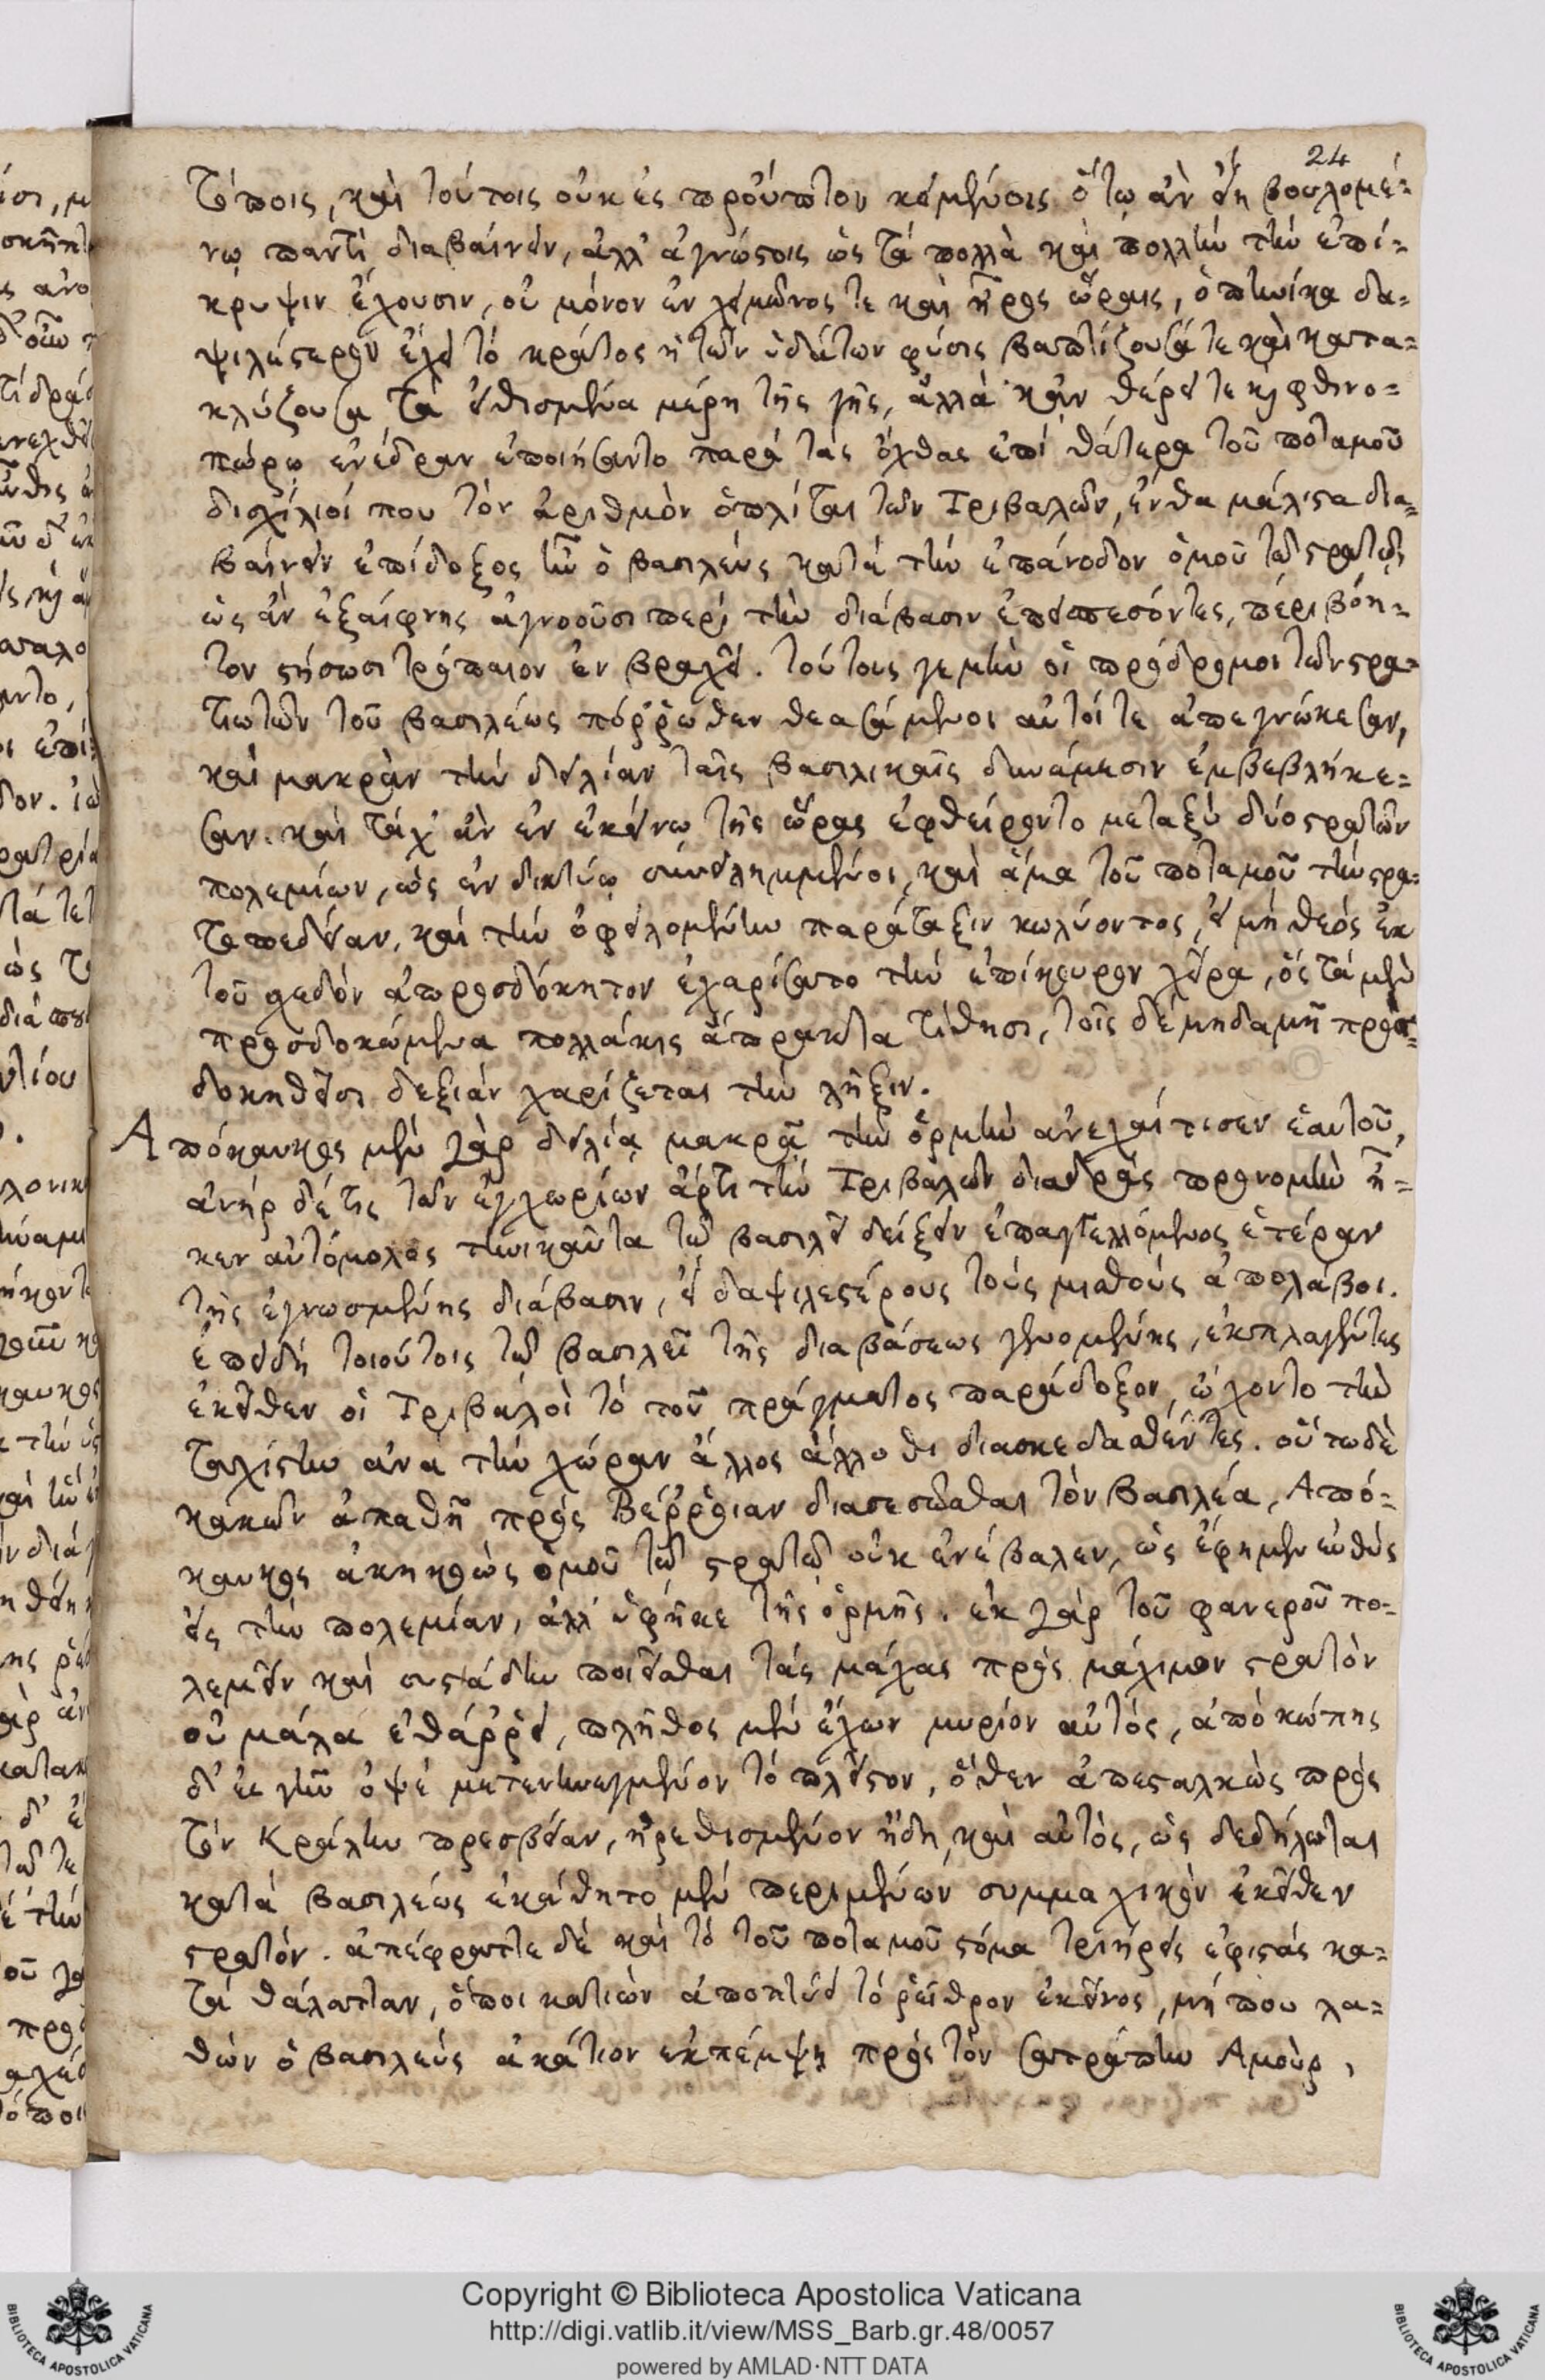 24
τόποις, καὶ τούτοις οὐκ ἐς προὖπτον κειμένοις ὅτῳ ἂν εἴη βουλομέ-
νῳ παντὶ διαβαίνειν, ἀλλ' ἀγνώστοις ὡς τὰ πολλὰ καὶ πολλὴν τὴν ἐπί-
κρυψιν ἔχουσιν, οὐ μόνον ἐν χειμῶνος τε καὶ ἦρος ὥραις, ὁπηνίκα δα-
ψιλέστερον ἔχει τὸ κράτος ἡ τῶν ὑδάτων φύσις βαπτίζουσά τε καὶ κατα-
κλύζουσα τὰ εἰθισμένα μέρη τῆς γῆς, ἀλλὰ κἀν θέρει τε καὶ φθινο-
πώρῳ ἐνέδραν ἐποιήσαντο παρὰ τὰς ὄχθας ἐπὶ θάτερα τοῦ ποταμοῦ
δισχίλιοί που τὸν ἀριθμὸν ὁπλίται τῶν Τριβαλῶν, ἔνθα μάλιστα δια-
βαίνειν ἐπίδοξος ἦν ὁ βασιλεὺς κατὰ τὴν ἐπάνοδον ὁμοῦ τῷ στρατῷ
ὡς ἂν ἐξαίφνης ἀγνοοῦσι περὶ τὴν διάβασιν ἐπεισπεσόντες, περιβόη-
τον στήσωσι τρόπαιον ἐν βραχεῖ. τούτους γε μὴν οἱ πρόδρομοι τῶν στρα-
τιωτῶν τοῦ βασιλέως πόῤῥωθεν θεασάμενοι αὐτοί τε ἀπεγνώκεσαν,
καὶ μακρὰν τὴν δειλίαν ταῖς βασιλικαῖς δυνάμεσιν ἐμβεβλήκε-
σαν. καὶ τάχ' ἂν ἐν ἐκείνῳ τῆς ὥρας ἐφθείροντο μεταξὺ δύο στρατῶν
πολεμίων, ὡς ἐν δικτύῳ συνειλημμένοι, καὶ ἅμα τοῦ ποταμοῦ τὴν στρα-
τοπεδείαν, καὶ τὴν ὀφειλομένην παράταξιν κωλύοντος, εἰ μὴ θεὸς ἐκ
τοῦ σχεδὸν ἀπροσδόκητον ἐχαρίσατο τὴν ἐπίκουρον χεῖρα, ὃς τὰ μὲν
προσδοκώμενα πολλάκις ἄπρακτα τίθησι, τοῖς δὲ μηδαμῆ προσ-
δοκηθεῖσι δεξιὰν χαρίζεται τὴν λῆξιν.
Ἀπόκαυκος μὲν γὰρ δειλίᾳ μακρᾷ τὴν ὁρμὴν ἀνεχαίτισεν ἑαυτοῦ,
ἀνὴρ δέ τις τῶν ἐγχωρίων ἄρτι τὴν Τριβαλῶν διαδρὰς προνομὴν ἧ-
κεν αὐτόμολος τηνικαῦτα τῷ βασιλεῖ δείξειν ἐπαγγελλόμενος ἑτέραν
τῆς ἐγνωσμένης διάβασιν, εἰ δαψιλεστέρους τοὺς μισθοὺς ἀπολάβοι.
ἐπειδὴ τοιούτοις τῷ βασιλεῖ τῆς διαβάσεως γενομένης, ἐκπλαγέντες
ἐκεῖθεν οἱ Τριβαλοὶ τὸ τοῦ πράγματος παράδοξον, ᾤχοντο τὴν
ταχίστην ἀνὰ τὴν χώραν ἄλλος ἄλλοθι διασκεδασθέντες. οὕτω δὲ
κακῶν ἀπαθῆ πρὸς Βέῤῥοιαν διασεσῶσθαι τὸν βασιλέα, Ἀπό-
καυκος ἀκηκοὼς ὁμοῦ τῷ στρατῷ οὐκ ἐνέβαλεν, ὡς ἔφημεν εὐθὺς
εἰς τὴν πολεμίαν, ἀλλ' ὑφῆκε τῆς ὁρμῆς. ἐκ γὰρ τοῦ φανεροῦ πο-
λεμεῖν καὶ συστάδην ποιεῖσθαι τὰς μάχας πρὸς μάχιμον στρατὸν
οὐ μάλα ἐθάῤῥει, πλῆθος μὲν ἔχων μυρίον αὐτός, ἀπὸ κώπης
δ' ἐς γῆν ὀψὲ μετενηνεγμένον τὸ πλεῖστον, ὅθεν ἀπεσταλκὼς πρὸς
τὸν Κράλην πρεσβείαν, ἠρεθισμένον ἤδη καὶ αὐτὸς, ὡς δεδήλωται
κατὰ βασιλέως ἐκάθητο μὲν περιμένων συμμαχικὸν ἐκεῖθεν
στρατόν. ἀπέφραττε δὲ καὶ τὸ τοῦ ποταμοῦ στόμα τριήρεις ἐφιστὰς κα-
τὰ θάλατταν, ὅποι κατιὼν ἀποπτύει τὸ ῥεῖθρον ἐκεῖνος, μή που λα-
θὼν ὁ βασιλεὺς ἀκάτιον ἐκπέμψῃ πρὸς τὸν σατράπην Ἀμοὺρ,
Copyright © Biblioteca Apostolica Vaticana
http://digi.vatlib.it/view/MSS_Barb.gr.48/0057
powered by AMLAD·NTT DATA
BIBLIOTECA APOSTOLICA VATICANA
BIBLIOTECA APOSTOLICA VATICANA